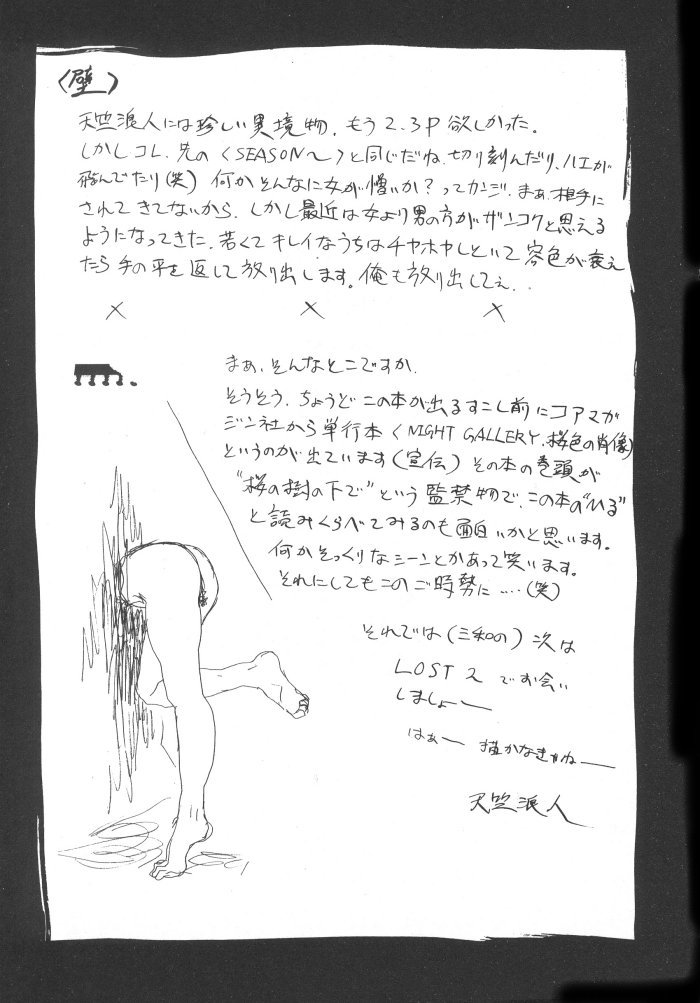 〈壁〉
天竺浪人には珍しい異境物、もう2、3P欲しかった。
しかしコレ、先の〈SEASON〜〉と同じだね、切り刻んだり、ハエが
飛んでたり(笑) 何かそんなに女が憎いか?ってカンジ、まぁ、相手に
されてきてないから、しかし最近は女より男の方がザンコクと思える
ようになってきた、若くてキレイなうちはチヤホヤしといて容色が衰え
たら手の平を返して放り出します。俺も放り出してぇ、、
× × ×
まぁ、そんなとこですか、
そうそう、ちょうどこの本が出るすこし前にコアマガ
ジン社から単行本〈NIGHT GALLERY、桜色の肖像〉
というのが出ています(宣伝) その本の巻頭が
"桜の樹の下で"という監禁物で、この本の"いる"
と読みくらべてみるのも面白いかと思います。
何かそっくりなシーンとかあって笑います。
それにしてもこのご時勢に‥‥(笑)
それでは(三和の)次は
LOST 2 でお会い
しましょー
はぁー 描かなきゃねー
天竺浪人